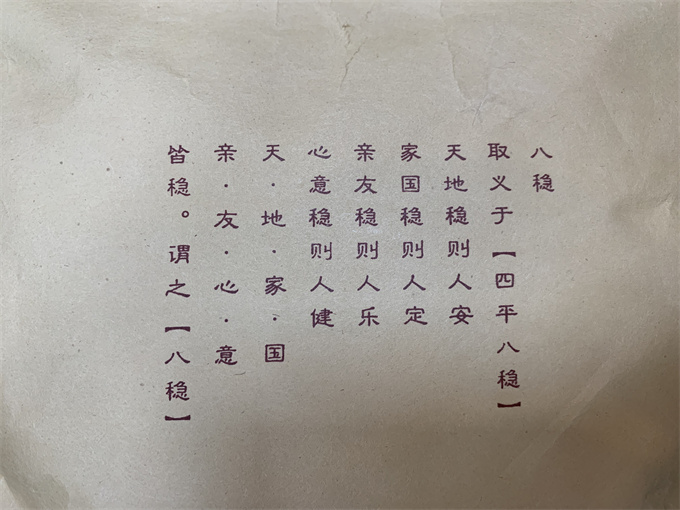 八稳
取义于【四平八稳】
天地稳则人安
家国稳则人定
亲友稳则人乐
心意稳则人健
天·地·家·国
亲·友·心·意
皆稳。谓之【八稳】